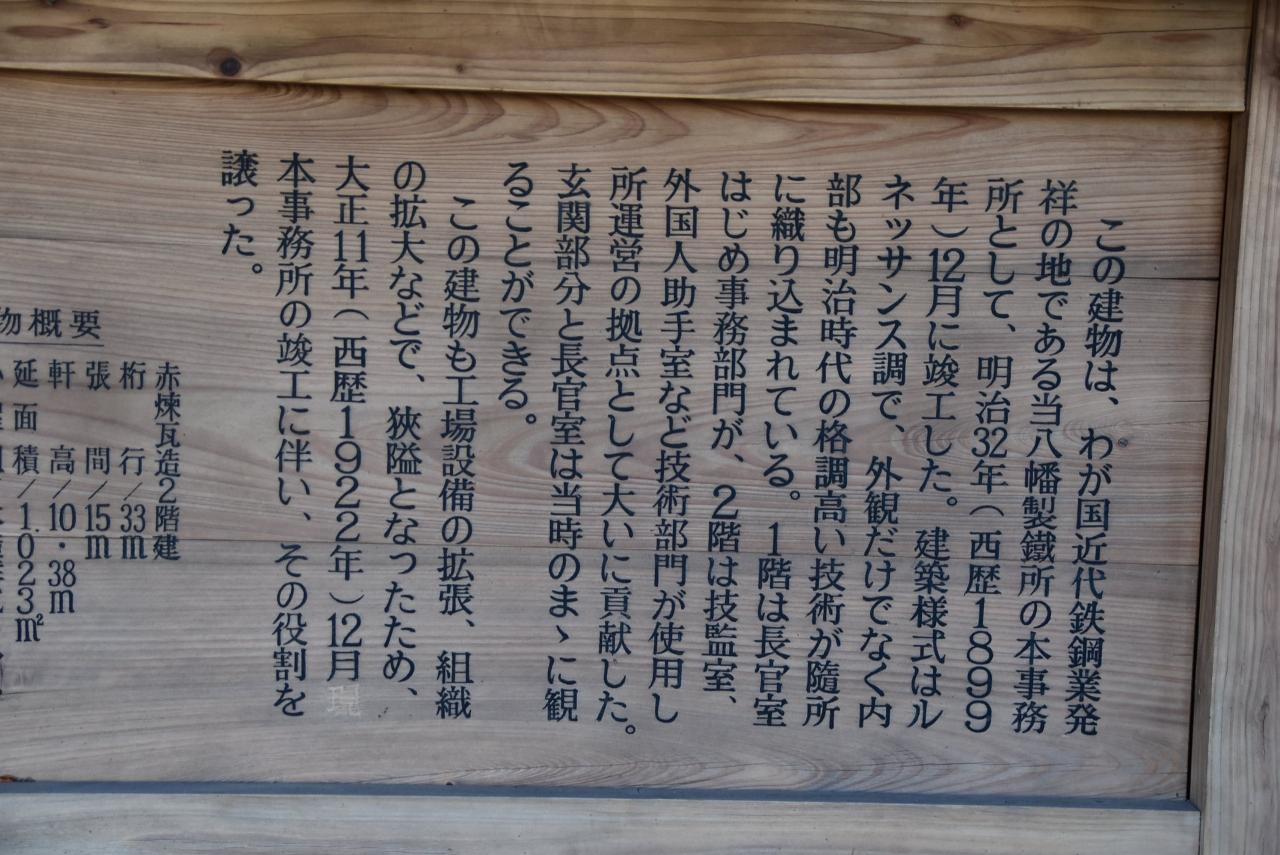 この建物は、わが国近代鉄鋼業発
祥の地である当八幡製鐵所の本事務
所として、明治32年（西歴1899
年）12月に竣工した。建築様式はル
ネッサンス調で、外観だけでなく内
部も明治時代の格調高い技術が随所
に織り込まれている。1階は長官室
はじめ事務部門が、2階は技監室、
外国人助手室など技術部門が使用し
所運営の拠点として大いに貢献した。
玄関部分と長官室は当時のまゝに観
ることができる。
この建物も工場設備の拡張、組織
の拡大などで、狭隘となったため、
大正11年（西歴1922年）12月現
本事務所の竣工に伴い、その役割を
譲った。
物概要
赤煉瓦造2階建
桁行/33m
張間/15m
軒高/10・38m
延面積/1.023㎡